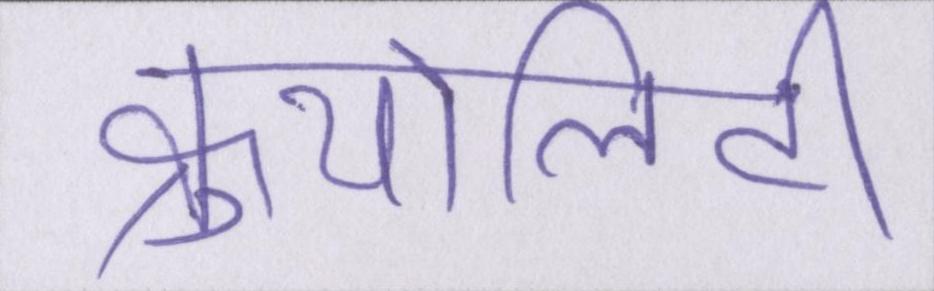 क्रुयोलिटी